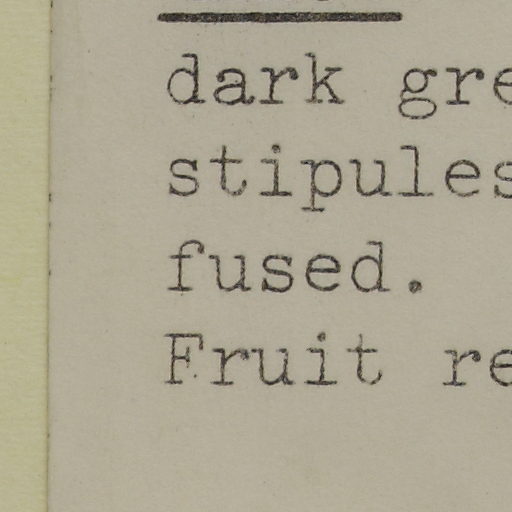 dark gre
stipules
fused.
Fruit re